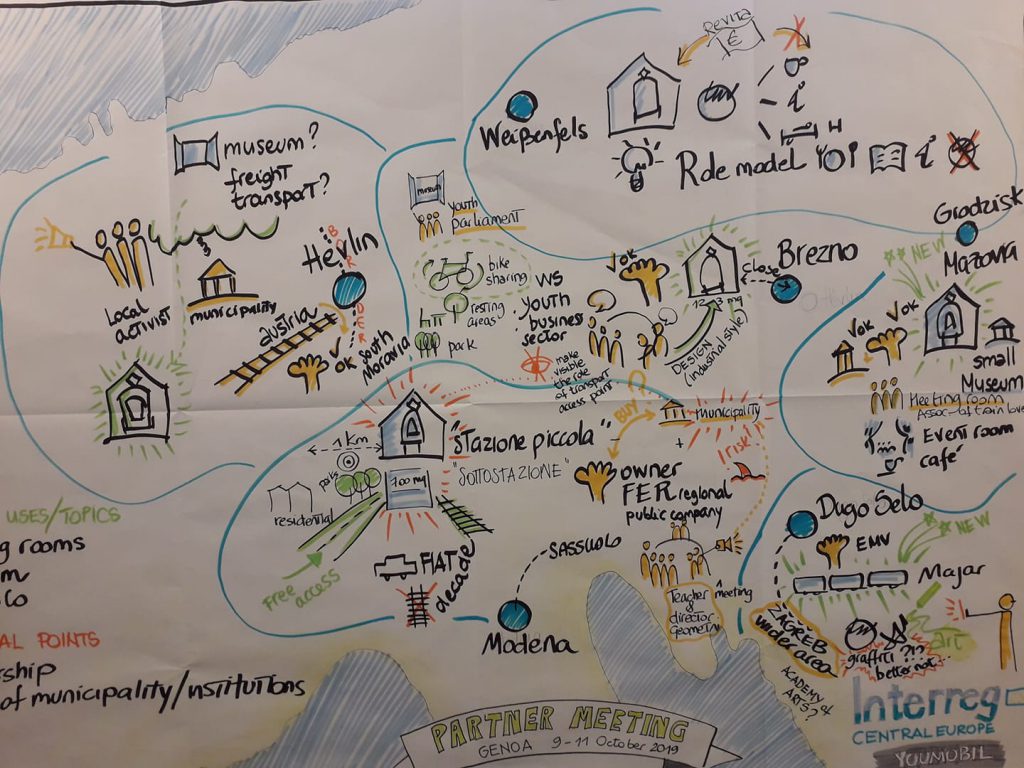 Revita
€
Weißenfels
Role model
i
i
H
museum?
freight
transport?
Local
activist
municipality
Herlin
austria
OK
South
Moravia
museum
youth
parliament
bike
sharing
resting
areas
park
WS
Youth
business
sector
make
visible
the role
of transport
access point
OK
DESIGN
(industrial style)
close
Brezno
Grodzisk
Mazovia
NEW
OK
OK
small
Museum
Meeting room
Assoc. of train love
Event room
café
"Stazione piccola"
"SOTTOSTAZIONE"
1 Km
park
residential
700 mq
Free
access
FIAT
decade
BUY?
municipality
+
-
risk!
owner
FER regional
public company
SASSUOLO
Modena
Teacher
&
director
Geometri
meeting
Dugo Selo
EMV
NEW
Majar
ZAGREB
wider area
ACADEMY
ARTS
?
graffiti?!?
better not..
art
USES/TOPICS
g rooms
m
lo
AL POINTS
rship
of municipality/institutions
PARTNER MEETING
GENOA 9-11 October 2019
Interreg
CENTRAL EUROPE
YOUMOBIL